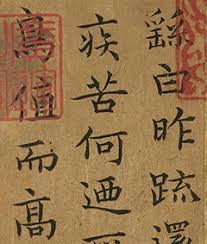 繇白昨疏還
疾苦何迺
鳥值而高